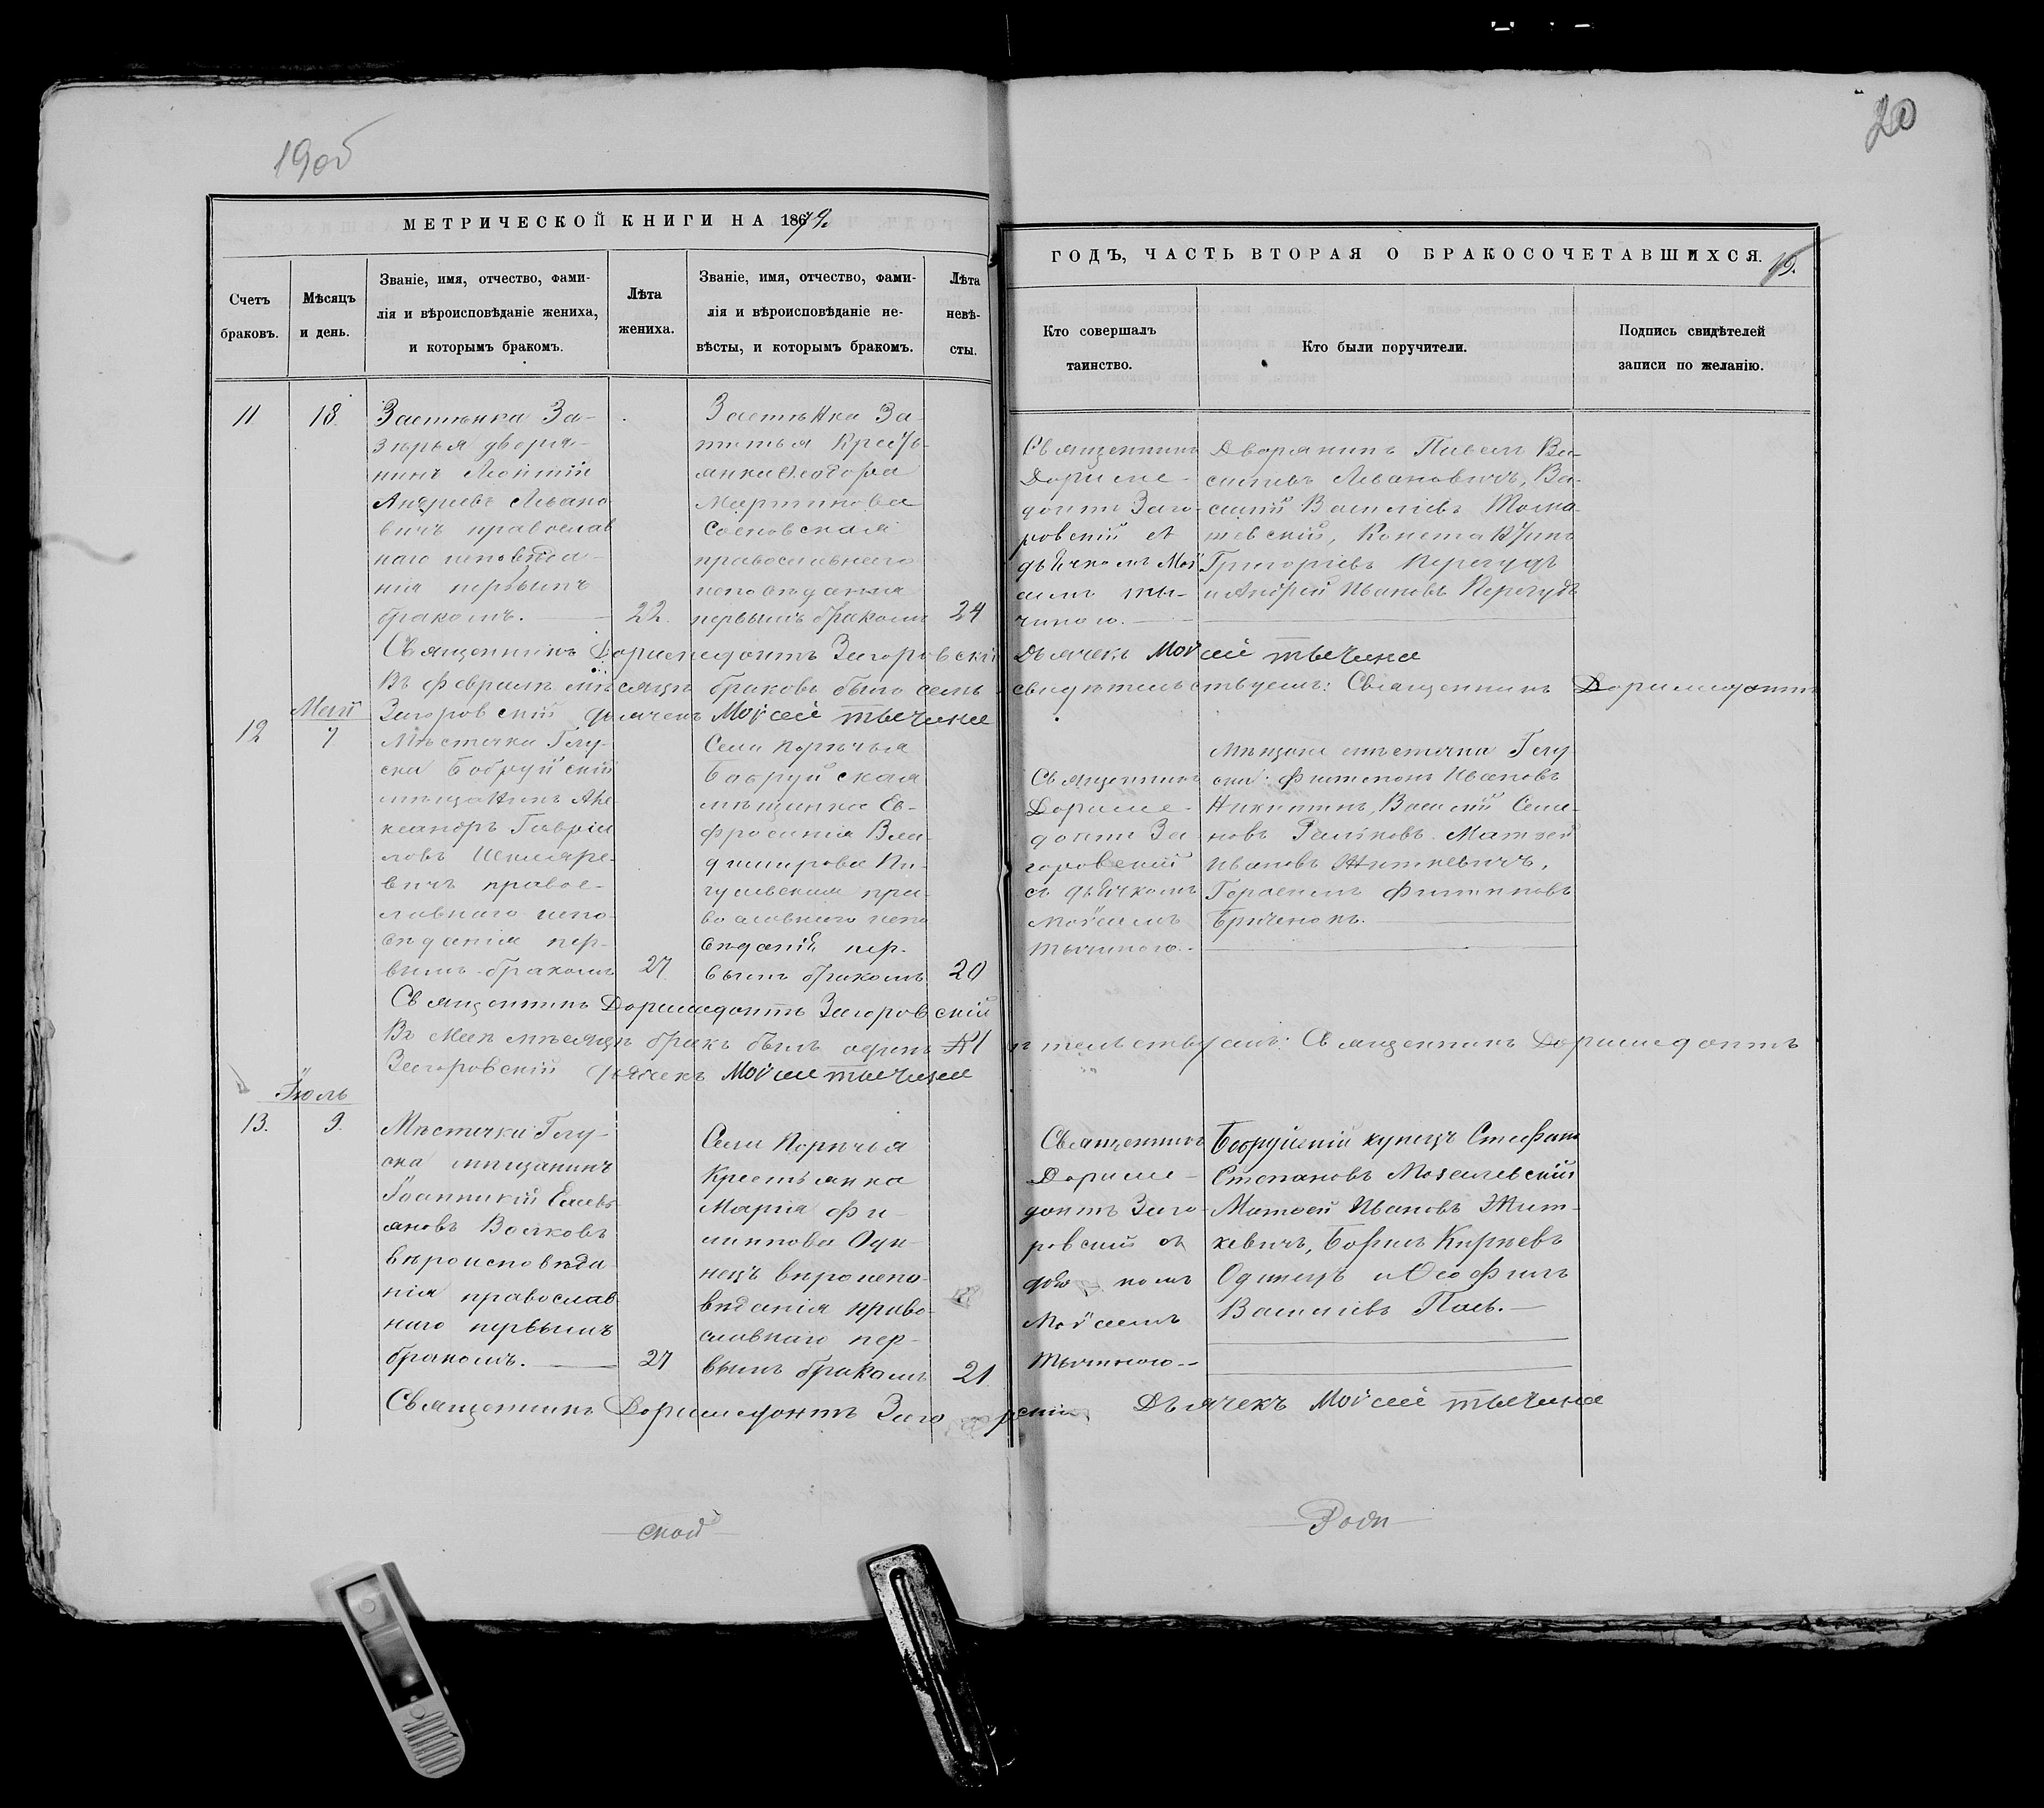 1905
20
МЕТРИЧЕСКОЙ КНИГИ НА 1879.
ГОДЪ, ЧАСТЬ ВТОРАЯ О БРАКОСОЧЕТАВШИХСЯ.
19.
Счетъ
браковъ.
Мѣсяцъ
и день.
Званіе, имя, отчество, фами-
лія и вѣроисповѣданіе жениха,
и которымъ бракомъ.
Лѣта
жениха.
Званіе, имя, отчество, фами-
лія и вѣроисповѣданіе не-
вѣсты, и которымъ бракомъ.
Лѣта
невѣ-
сты.
Кто совершалъ
таинство.
Кто были поручители.
Подпись свидѣтелей
записи по желанію.
11
18.
Застѣнка За-
зерья дворя-
нинъ Леонтій
Андреевъ Ивано
вичъ православ
наго исповѣда-
нія первымъ
бракомъ.
22.
Застѣнка За-
тишья Кресть-
янка Ѳеодора
Мартинова
Сосновская
православнаго
исповѣданія
первымъ бракомъ
24
Священникъ
Дориме-
донтъ Заго-
ровскій съ
дьячкомъ Мой
сеемъ Ты-
чиною.
Дворянинъ Павелъ Ва-
сильевъ Ивановичъ, Ва-
силій Василіевъ
Константинъ
Григоріевъ Перегудъ
и Андрей Ивановъ Перегудъ
Священникъ Доримедонтъ Загоровскій Дьячекъ Мойсей Тычина
Въ Февралѣ мѣсяцѣ браковъ было семь свидѣтельствуемъ: Священникъ Доримедонтъ
Загоровскій дьячекъ Мойсей Тычина
Май
12
7
Мѣстечка Глу-
ска Бобруйскій
мѣщанинъ Але-
ксандръ Гавріи
ловъ Шкляре-
вичъ правос-
лавнаго испо-
вѣданія пер-
вымъ бракомъ
27.
Села Порѣчья
Бобруйская
мѣщанка Ев-
фросинія Вла-
димирова Пи-
гулевская пра-
вославнаго испо
вѣданія пер-
вымъ бракомъ
20
Священникъ
Дориме-
донтъ За
горовскій
съ дьячкомъ
Мойсеемъ
Тычиною.
Мѣщане мѣстечка Глу
ска: Филимонъ Ивановъ
Никитинъ, Василій Семе-
новъ Матвей
Ивановъ Житкевичъ,
Герасимъ Филиповъ
Священникъ Доримедонтъ Загоровскій
Въ Маѣ мѣсяцѣ бракъ былъ одинъ №1
Священникъ Доримедонтъ
Загоровскій дьячекъ Мойсей Тычина
Іюль
13.
9.
Мѣстечка Глу-
ска мѣщанинъ
Іоанникій Емель
яновъ Волковъ
вѣроисповѣда
нія православ
наго первымъ
бракомъ.
27
Села Порѣчья
Крестьянка
Марія Фи-
липпова Оди-
нецъ вѣроиспо-
вѣданія право-
славнаго пер-
вымъ бракомъ
21.
Священникъ
Дориме-
донтъ Заго-
ровскій съ
комъ
Мойсеемъ
Тычиною.
Бобруйскій купецъ Стефанъ
Степановъ Мозалевскій
Матвей Ивановъ Жит-
кевичъ, Борисъ Кирѣевъ
Одинецъ и Ѳеофилъ
Василіевъ Павъ.
Священникъ Доримедонтъ Заго рскій Дьячекъ Мойсей Тычина
ской
Роди